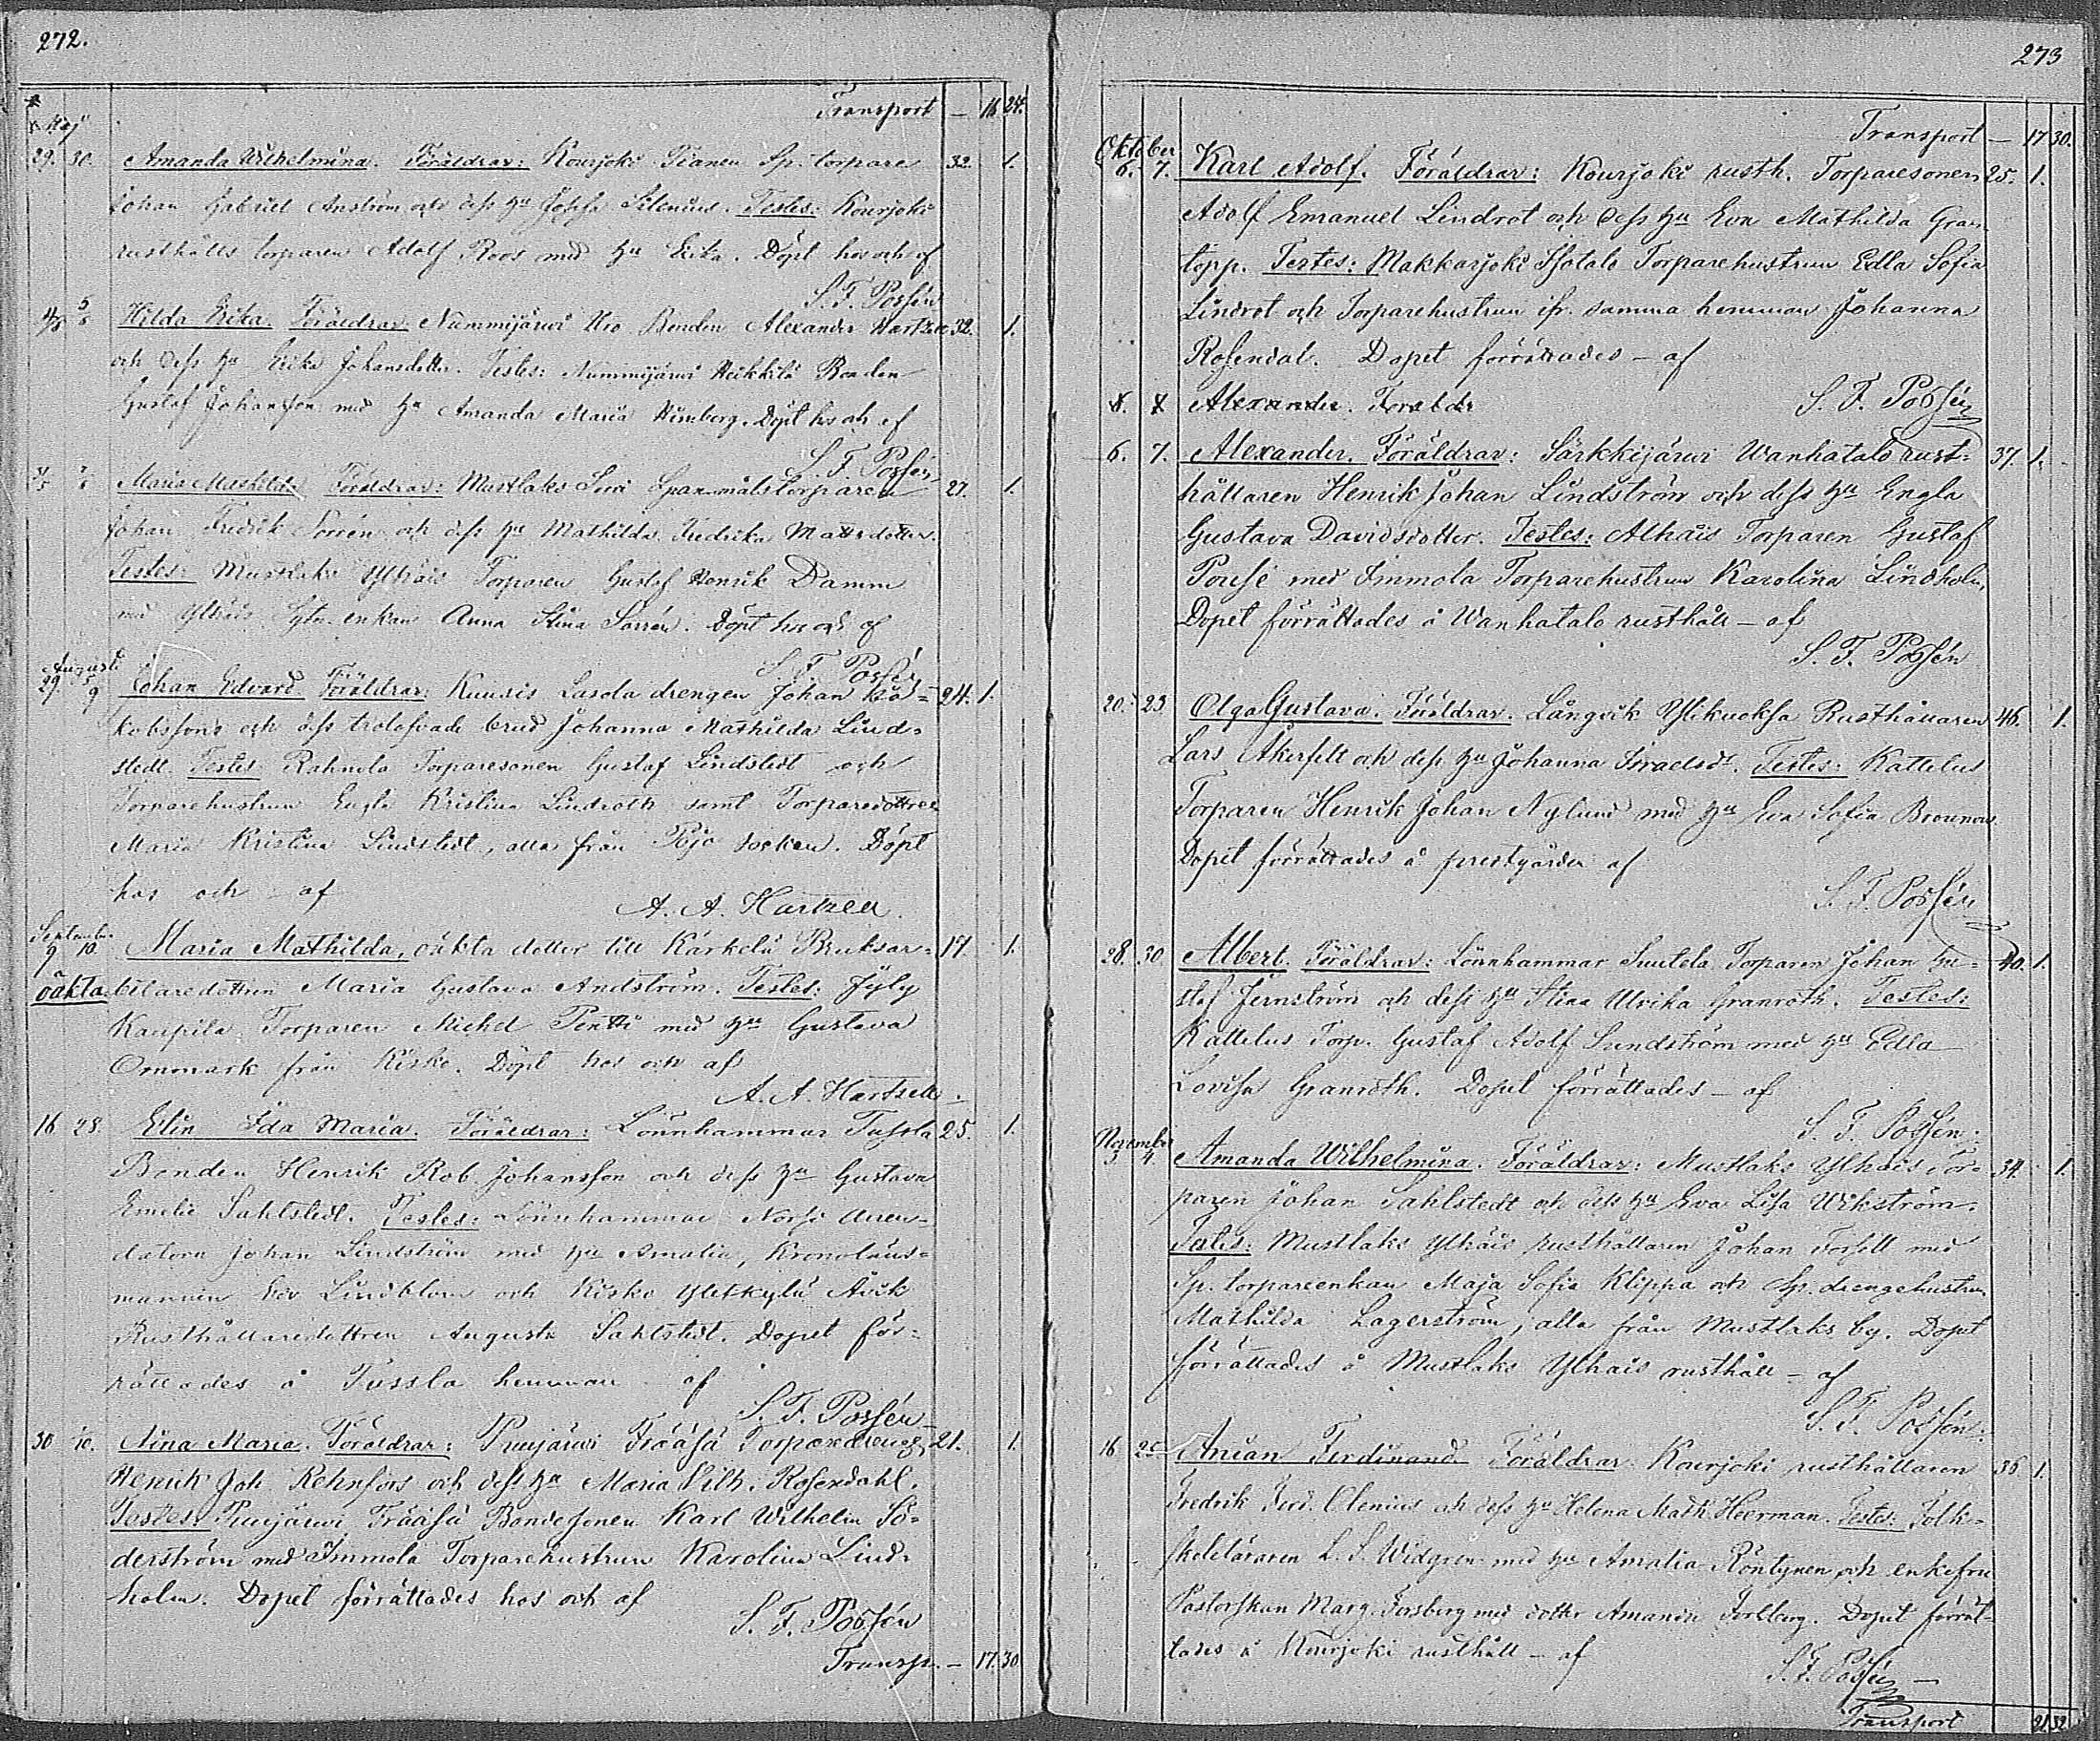 272.
Transport — 16 24.
Maj
29. 30. Amanda Wilhelmina. Föräldrar: Kourjoki Sp. torpare 32. 1.
Johan Gabriel Anström och dess hu Josefa Silenius. Testes: Kourjoki
rusthålls torparen Adolf Roos med hu Erika. Döpt hos och af
S. F. Possén
Hilda Erika. Föräldrar: Nummijärwi Uro Bonden Alexander Hartzen 32. 1.
och dess hu Erika Johansdotter. Testes: Nummijärwi Heikkilä Bonden
Gustaf Johansson med hu Amanda Maria Himberg. Döpt hos och af
S. F. Possén
Maria Mathilda Föräldrar: Mustlaks Sorri Spanmålstorparen 27. 1.
Johan Fredrik Sorrén och dess hu Mathilda Fredrika Mattsdotter.
Testes: Mustlaks Ylhäis Torparen Gustaf Henrik Damm
med Ylhäis Sytn. enkan Anna Stina Sorrén. Döpt hos och af
S. F. Possén
Augusti
29. 9 Johan Edvard Föräldrar: Kuusis Lasola drengen Johan Ja= 24. 1.
kobssons och dess trolofvade brud Johanna Mathilda Lind=
stedt. Testes Rahnola Torparesonen Gustaf Lindstedt och
Torparehustrun Engla Kristina Lindroth samt Torparedottren
Maria Kristina Lindstedt, alla från Pojo socken. Döpt
hos och af
A. A. Hartzell.
September
9 10. Maria Mathilda, oäkta dotter till Kärkelä Bruksar= 17. 1.
oäkta. betaredottren Maria Gustava Andström. Testes: Jyly
Kaupila Torparen Michel Pentti med hu Gustava
Ornmark från Kisko. Döpt hos och af
A. A. Hartzell.
16 28. Elin Ida Maria. Föräldrar: Lönnhammar Tussla 25. 1.
Bonden Henrik Rob. Johansson och dess hu Gustava
Emelie Sahlstedt. Testes: Lönnhammar Norsi Arren=
datorn Johan Lindström med hu Amalia, Kronoläns=
mannen Lindblom och Kisko
Rusthållaredottren Augusta Sahlstedt. Dopet för=
rättades å Tussla hemman af
S. F. Possén
30 10. Aina Maria. Föräldrar: Puujärwi Frääsä Torparedrengen 21. 1.
Henrik Joh. Rehnfors och dess hu Maria Vilh. Rosendahl.
Testes: Puujärwi Frääsä Bondesonen Karl Wilhelm Sö=
derström med Immola Torparehustrun Karolina Lind=
holm. Dopet förrättades hos och af
S. F. Possén
Transp. — 17. 30
273
Transport — 17 30.
Oktober
6. 7. Karl Adolf. Föräldrar: Kourjoki rusth. Torparesonen 25. 1.
Adolf Emanuel Lindrot och dess hu Eva Mathilda Gran=
topp. Testes: Makkarjoki Isotalo Torparehustrun Edla Sofia
Lindrot och Torparehustrun ifr. samma hemman Johanna
Rosendal. Dopet förrättades — af
S. F. Possén
8. 8 Alexander. Föräldr
6. 7. Alexander. Föräldrar: Särkkijärwi Wanhatalo rust= 37. 1.
hållaren Henrik Johan Lindström och dess hu Engla
Gustava Davidsdotter. Testes: Alhäis Torparen Gustaf
med Immola Torparehustrun Karolina Lindholm,
Dopet förrättades å Wanhatalo rusthåll — af
S. F. Possén
20. 23. Olga Gustava. Föräldrar. Långvik Ylikuoksa Rusthållaren 46. 1.
Lars Åkerfelt och dess hu Johanna Israelsdr. Testes: Kattelus
Torparen Henrik Johan Nylund med hu Eva Sofia
Dopet förrättades å prestgården af
S. F. Possén
28. 30 Albert. Föräldrar: Lönnhammar Suutela Torparen Johan Gu= 40. 1.
staf Jernström och dess hu Stina Ulrika Granroth. Testes:
Kattelus Torp. Gustaf Adolf Sundström med hu Edla
Lovisa Granroth. Dopet förrättades — af
S. F. Possén.
November
3. 4. Amanda Wilhelmina. Föräldrar: Mustlaks Ylhäis Tor= 34. 1.
paren Johan Sahlstedt och dess hu Eva Lisa Wikström.
Testes: Mustlaks Ylhäis rusthållaren Johan Forsell med
Sp. torpareenkan Maja Sofia Klippa och Sp. drengehustrun
Mathilda Lagerström, alla från Mustlaks by. Dopet
förrättades å Mustlaks Ylhäis rusthåll — af
S. F. Possén.
16 25 Ferdinand Föräldrar Kourjoki rusthållaren 36 1.
Fredrik Ferd. Olenius och dess hu Helena Math. Heerman. Testes: Folk=
skoleläraren L. S. Widgren med hu Amalia Röntynen och enkefru
Pastorskan Marg. Forsberg med dotter Amanda Forsberg. Dopet förrät=
tades å Kourjoki rusthåll — af
S. F. Possén —
Transport 21 32